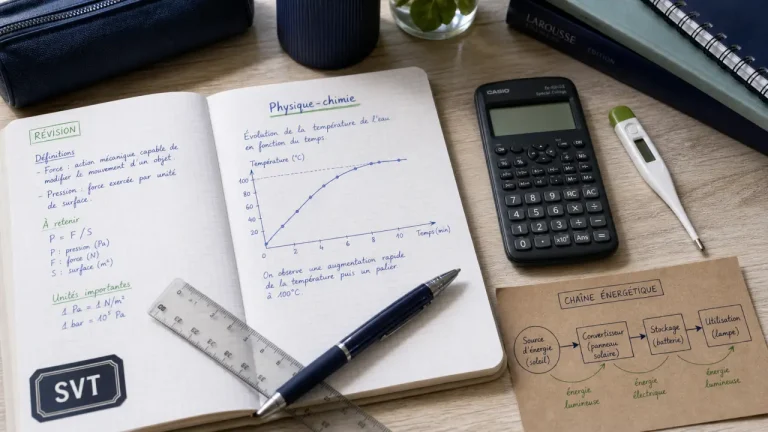 RÉVISION
Définitions
- Force : action mécanique capable de
modifier le mouvement d'un objet
- Pression : force exercée par unité
de surface.
À retenir
P = F / S
P : pression (Pa)
F : force (N)
S : surface (m²)
Unités importantes
1 Pa = 1 N/m²
1 bar = 10⁵ Pa
SVT
Physique-chimie
Évolution de la température de l'eau
en fonction du temps
Température (°C)
100
80
60
40
20
0
2
4
6
8
10
Temps (min)
On observe une augmentation rapide
de la température puis un palier
à 100°C
CASIO
7 8 9 RC AC
4 5 6
1 2 3
0 . x10ˣ Ans =
LAROUSSE
ÉDITION
CHAÎNE ÉNERGÉTIQUE
Source
d'énergie
(soleil)
Convertisseur
(panneau
solaire)
Stockage
(batterie)
Utilisation
(lampe)
énergie
lumineuse
énergie
électrique
énergie
lumineuse